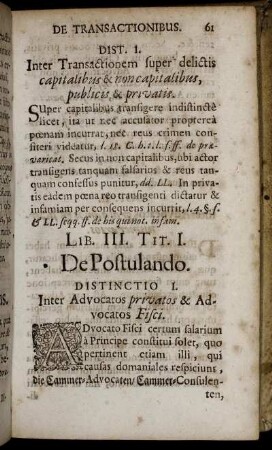 DE TRANSACTIONIBUS. 61
DIST. I.
Inter Transactionem super delictis
capitalibus & non capitalibus,
publicis & privatis.
SUper capitalibus transigere indistinctè
licet, ita ut nec accusator propterea
pœnam incurrat, nec reus crimen con-
fiteri videatur, l. 18. C. h. t. l. f. ff. de præ-
varicat. Secus in non capitalibus, ubi actor
transigens tanquam falsarios & reus tan-
quam confessus punitur, dd. LL. In priva-
tis eadem pœna reo transigenti dictatur &
infamiam per consequens incurrit, l. 4. §. f.
& LL. seqq. ff. de his qui not. infam.
LIB. III. TIT. I.
De Postulando.
DISTINCTIO I.
Inter Advocatos privatos & Ad-
vocatos Fisci.
ADvocato Fisci certum salarium
à Principe constitui solet, quo
pertinent etiam illi, qui
causas domaniales respiciunt,
die Cammer-Advocaten/ Cammer-Consulen-
ten,